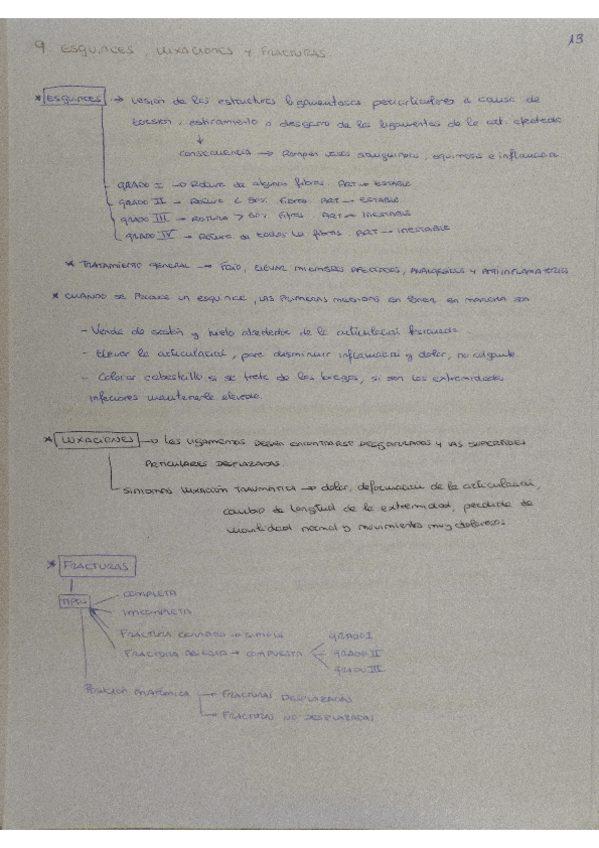 13
9 ESGUINCES, LUXACIONES Y FRACTURAS
* ESGUINCES → Lesión de las estructuras ligamentosas periarticulares a causa de
torsión, estiramiento o desgarro de los ligamentos de la art. afectada
↓
CONSECUENCIA → Rompen vasos sanguineos, equimosis e inflamación
GRADO I → Rotura de algunas fibras. ART → ESTABLE
GRADO II → Rotura < 50% fibras. ART → ESTABLE
GRADO III → ROTURA > 50% fibras ART → INESTABLE
GRADO IV → Rotura de todas las fibras. ART → INESTABLE
* TRATAMIENTO GENERAL → FRÍO, ELEVAR MIEMBROS AFECTADOS, ANALGÉSICOS Y ANTIINFLAMATORIOS
* CUANDO SE PRODUCE UN ESGUINCE, LAS PRIMERAS MEDIDAS EN PONER EN MARCHA SON
- Venda de sostén y hielo alrededor de la articulación
- Elevar la articulación, para disminuir inflamación y dolor, no colgante
- Colocar cabestrillo si se trata de los brazos, si son las extremidades
inferiores mantenerla elevada.
* LUXACIONES → LOS LIGAMENTOS DEBEN ENCONTRARSE DESGARRADOS Y LAS SUPERFICIES
ARTICULARES DESPLAZADAS
SÍNTOMAS LUXACIÓN TRAUMÁTICA → dolor, deformación de la articulación,
cambio de longitud de la extremidad, perdida de
movilidad normal y movimiento muy doloroso
* FRACTURAS
TIPOS
COMPLETA
INCOMPLETA
FRACTURA CERRADA → SIMPLE
FRACTURA ABIERTA → COMPUESTA
GRADO I
GRADO II
GRADO III
POSICIÓN ANATÓMICA → FRACTURAS DESPLAZADAS
→ FRACTURAS NO DESPLAZADAS